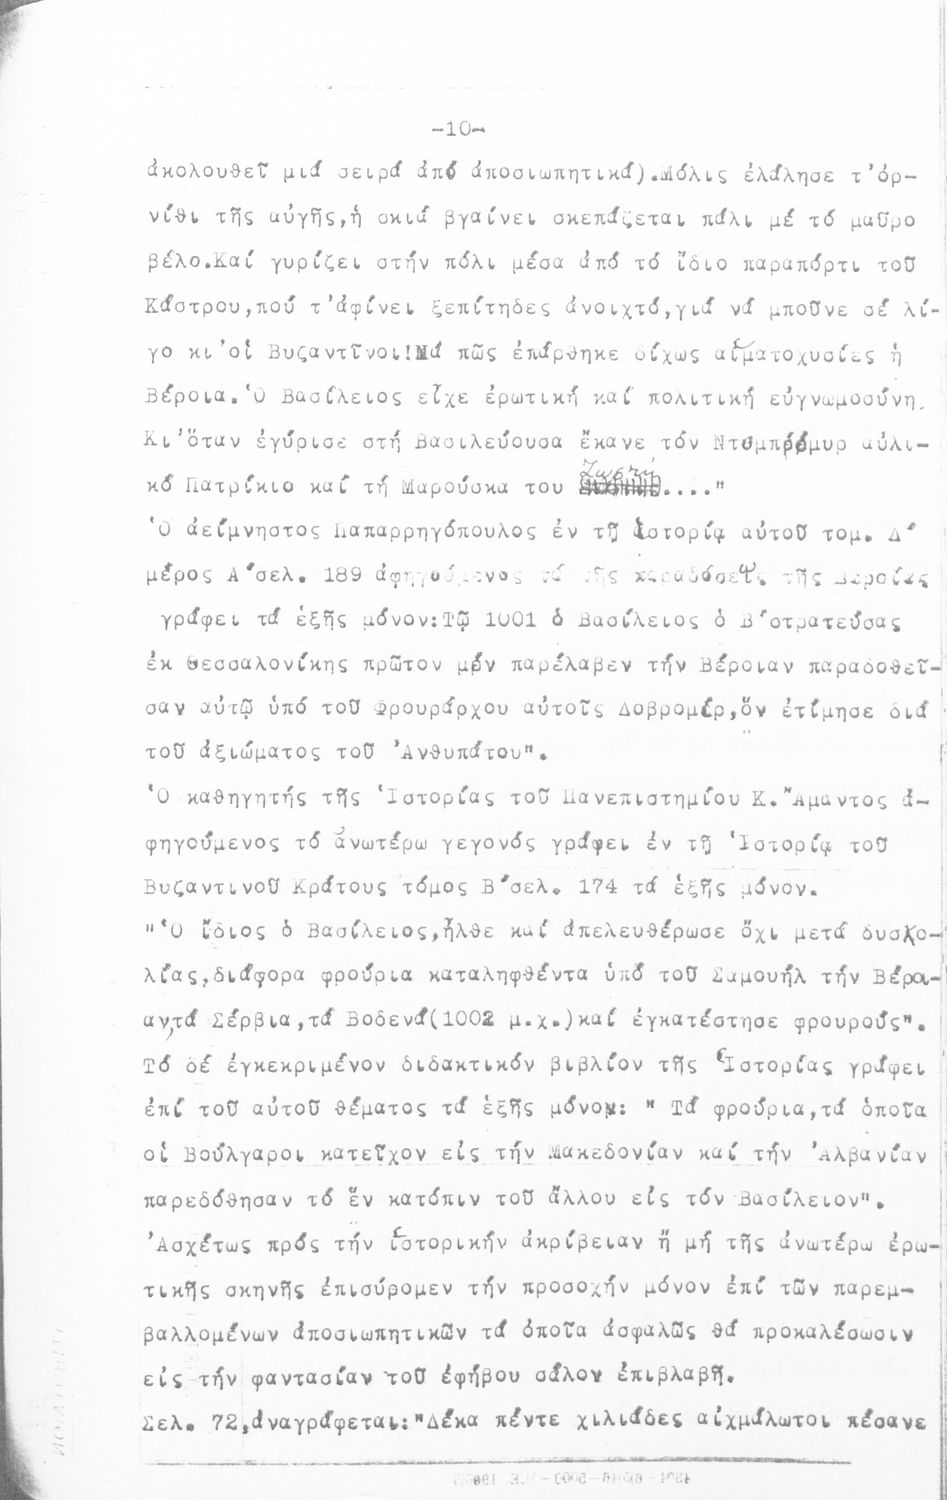 -10-
ἀκολουθεῖ μιά σειρά ἀπό ἀποσιωπητικά).Μόλις ἐλάλησε τ'ὀρ-
νίθι τῆς αὐγῆς,ἡ σκιά βγαίνει σκεπάζεται πάλι μέ τό μαῦρο
βέλο.Καί γυρίζει στήν πόλι μέσα ἀπό τό ἴδιο παραπόρτι τοῦ
Κάστρου,πού τ'ἀφίνει ξεπίτηδες ἀνοιχτό,γιά νά μποῦνε σέ λί-
γο κι'οἱ Βυζαντῖνοι!Νά πῶς ἐπάρθηκε δίχως αἱματοχυσίες ἡ
Βέροια.Ὁ Βασίλειος εἶχε ἐρωτική καί πολιτική εὐγνωμοσύνη.
Κι'ὅταν ἐγύρισε στή Βασιλεύουσα ἔκανε τόν Ντομπρόμυρ αὐλι-
κό Πατρίκιο καί τή Μαρούσκα του Ζωστή...."
Ὁ ἀείμνηστος Παπαρρηγόπουλος ἐν τῇ ἱστορίᾳ αὐτοῦ τομ. Δ'
μέρος Α'σελ. 189 ἀφηγούμενος τά τῆς παραδόσεως τῆς Βεροίας
γράφει τά ἑξῆς μόνον:Τῷ 1001 ὁ Βασίλειος ὁ Β'στρατεύσας
ἐκ Θεσσαλονίκης πρῶτον μέν παρέλαβεν τήν Βέροιαν παραδοθεῖ-
σαν αὐτῷ ὑπό τοῦ Φρουράρχου αὐτοῖς Δοβρομέρ,ὅν ἐτίμησε διά
τοῦ ἀξιώματος τοῦ Ἀνθυπάτου".
Ὁ καθηγητής τῆς Ἱστορίας τοῦ Πανεπιστημίου Κ.Ἄμαντος ἀ-
φηγούμενος τό ἀνωτέρω γεγονός γράφει ἐν τῇ Ἱστορίᾳ τοῦ
Βυζαντινοῦ Κράτους τόμος Β'σελ. 174 τά ἑξῆς μόνον.
"Ὁ ἴδιος ὁ Βασίλειος,ἦλθε καί ἀπελευθέρωσε ὄχι μετά δυσκο-
λίας,διάφορα φρούρια καταληφθέντα ὑπό τοῦ Σαμουήλ τήν Βέροι-
αν,τά Σέρβια,τά Βοδενά(1002 μ.χ.)καί ἐγκατέστησε φρουρούς".
Τό δέ ἐγκεκριμένον διδακτικόν βιβλίον τῆς Ἱστορίας γράφει
ἐπί τοῦ αὐτοῦ θέματος τά ἑξῆς μόνον: " Τά φρούρια,τά ὁποῖα
οἱ Βούλγαροι κατεῖχον εἰς τήν Μακεδονίαν καί τήν Ἀλβανίαν
παρεδόθησαν τό ἕν κατόπιν τοῦ ἄλλου εἰς τόν Βασίλειον".
Ἀσχέτως πρός τήν ἱστορικήν ἀκρίβειαν ἤ μή τῆς ἀνωτέρω ἐρω-
τικῆς σκηνῆς ἐπισύρομεν τήν προσοχήν μόνον ἐπί τῶν παρεμ-
βαλλομένων ἀποσιωπητικῶν τά ὁποῖα ἀσφαλῶς θά προκαλέσωσιν
εἰς τήν φαντασίαν τοῦ ἐφήβου σάλον ἐπιβλαβῆ.
Σελ. 72,ἀναγράφεται:"Δέκα πέντε χιλιάδες αἰχμάλωτοι πέσανε